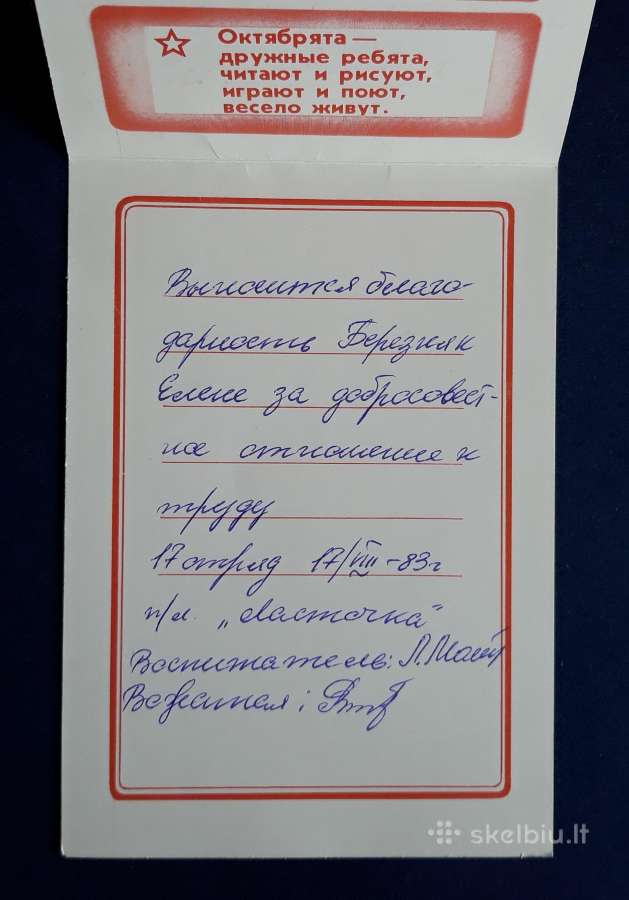 Октябрята —
дружные ребята,
читают и рисуют,
играют и поют,
весело живут.
Выносится благо-
дарность Березняк
Елене за добросовест-
ное отношение к
труду
17 отряд 17/VIII-83г
п/л. „Ласточка"
Воспитатель:
Вожатая:
skelbiu.lt